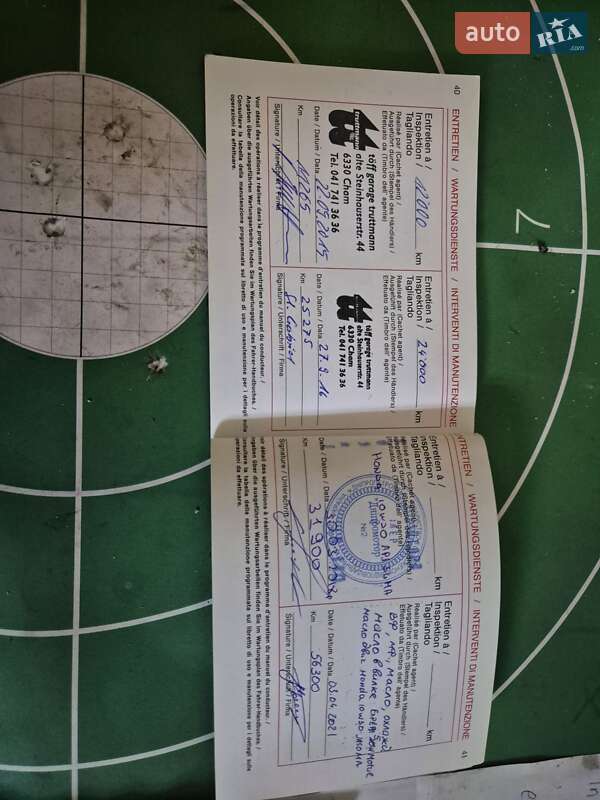 auto RIA .com
7
40
ENTRETIEN / WARTUNGSDIENSTE / INTERVENTI DI MANUTENZIONE
Entretien à /
Inspektion / 12000 km
Tagliando
Réalisé par (Cachet agent) /
Ausgeführt durch (Stempel des Händlers) /
Effetuato da (Timbro dell' agente)
truttmann
töff garage truttmann
alte Steinhauserstr. 44
6330 Cham
Tel. 041 741 36 36
Date / Datum / Data 22.05.2015
Km 11205
Signature / Unterschrift / Firma
Entretien à /
Inspektion / 24000 km
Tagliando
Réalisé par (Cachet agent) /
Ausgeführt durch (Stempel des Händlers) /
Effetuato da (Timbro dell' agente)
töff garage truttmann
alte Steinhauserstr. 44
6330 Cham
Tel. 041 741 36 36
Date / Datum / Data 27.9.16
Km 25275
Signature / Unterschrift / Firma
Voir détail des opérations à réaliser dans le programme d'entretien du manuel du conducteur. /
Angaben über die ausgeführten Wartungsarbeiten finden Sie im Wartungsplan des Fahrer-Handbuches. /
Consultare la tabella della manutenzione programmata sul libretto di uso e manutenzione per i dettagli sulle
operazioni da effettuare.
41
ENTRETIEN / WARTUNGSDIENSTE / INTERVENTI DI MANUTENZIONE
Entretien à /
Inspektion / km
Tagliando
Honda 10w30
Date / Datum / Data
Km 31900
Signature / Unterschrift / Firma
Entretien à /
Inspektion / km
Tagliando
Réalisé par (Cachet agent) /
Ausgeführt durch (Stempel des Händlers) /
Effetuato da (Timbro dell' agente)
ВФ, МФ, Масло,
Масло в вилке
масло двиг. Honda 10w30
Date / Datum / Data 03.04.2021
Km 56300
Signature / Unterschrift / Firma
Voir détail des opérations à réaliser dans le programme d'entretien du manuel du conducteur. /
Angaben über die ausgeführten Wartungsarbeiten finden Sie im Wartungsplan des Fahrer-Handbuches. /
Consultare la tabella della manutenzione programmata sul libretto di uso e manutenzione per i dettagli sulle
operazioni da effettuare.